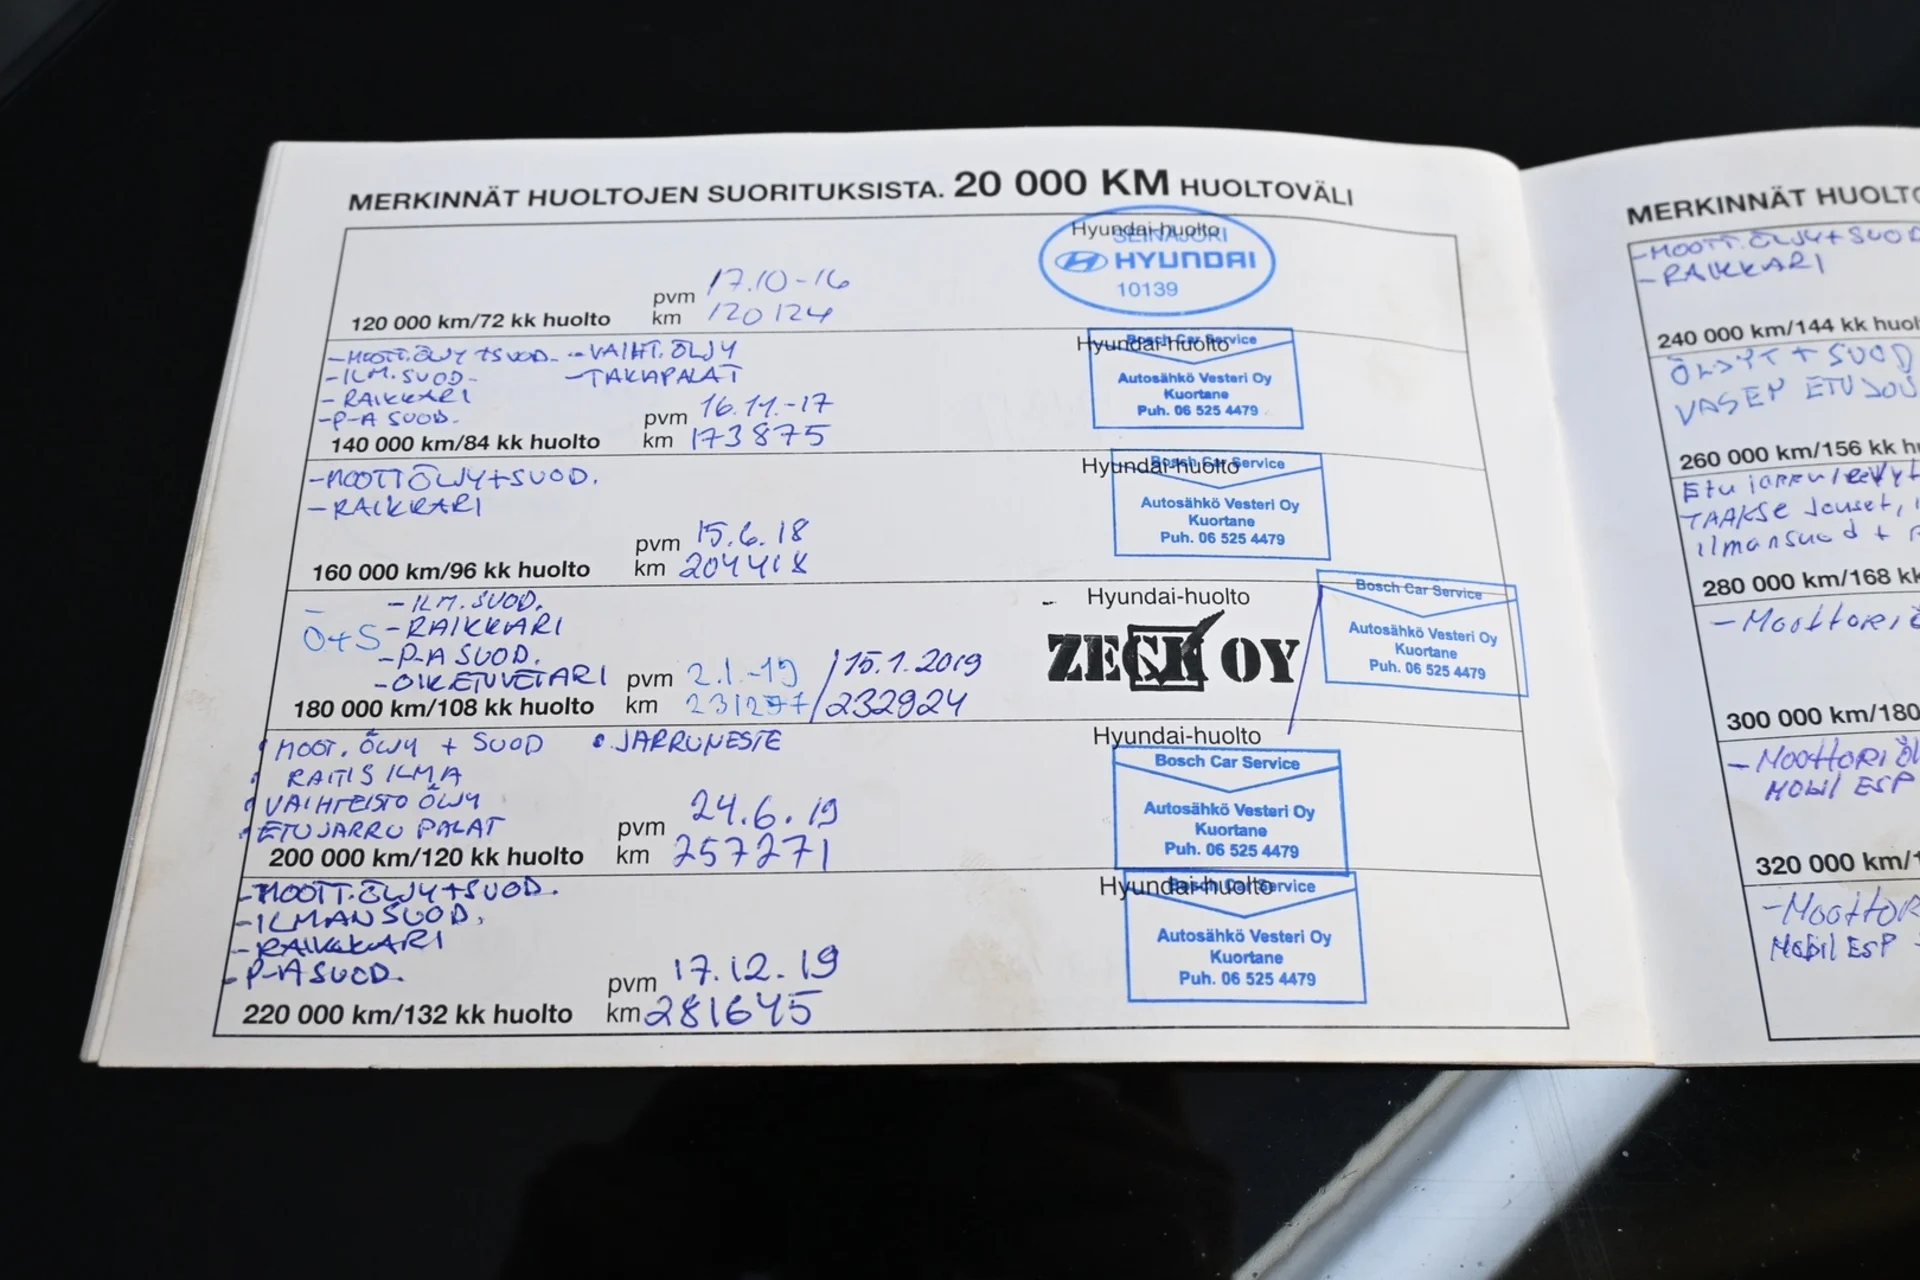 MERKINNÄT HUOLTOJEN SUORITUKSISTA. 20 000 KM HUOLTOVÄLI
Hyundai-huolto
SEINÄJOKI
HYUNDAI
10139
pvm 17.10-16
km 120124
120 000 km/72 kk huolto
-MOOTT.ÖLJY+SUOD. -VAIHT.ÖLJY
-ILM.SUOD- -TAKAPALAT
-RAIKKARI
-P-A SUOD.
pvm 16.11.-17
km 173875
140 000 km/84 kk huolto
Hyundai-huolto
Bosch Car Service
Autosähkö Vesteri Oy
Kuortane
Puh. 06 525 4479
-MOOTTÖLJY+SUOD.
-RAIKKARI
pvm 15.6.18
km 204418
160 000 km/96 kk huolto
Hyundai-huolto
Bosch Car Service
Autosähkö Vesteri Oy
Kuortane
Puh. 06 525 4479
-ILM.SUOD.
O+S -RAIKKARI
-P-A SUOD.
-OIK.ETUVETARI
pvm 2.1.-19 /15.1.2019
km 231297/232924
180 000 km/108 kk huolto
Hyundai-huolto
ZECK OY
Bosch Car Service
Autosähkö Vesteri Oy
Kuortane
Puh. 06 525 4479
MOOT. ÖLJY + SUOD • JARRUNESTE
RAITIS ILMA
VAIHTEISTO ÖLJY
ETUJARRU PALAT
pvm 24.6.19
km 257271
200 000 km/120 kk huolto
Hyundai-huolto
Bosch Car Service
Autosähkö Vesteri Oy
Kuortane
Puh. 06 525 4479
-MOOTT.ÖLJY+SUOD.
-ILMANSUOD.
-RAIKKARI
-P-A SUOD.
pvm 17.12.19
km 281645
220 000 km/132 kk huolto
Hyundai-huolto
Bosch Car Service
Autosähkö Vesteri Oy
Kuortane
Puh. 06 525 4479
MERKINNÄT HUOLTO
-MOOTT.ÖLJY+SUOD
-RAIKKARI
240 000 km/144 kk huol
ÖLJYT + SUOD
VASEN ETUJOU
260 000 km/156 kk h
Etu jarru
TAAKSE Jouset,
ilmansuod +
280 000 km/168 kk
-Moottori
300 000 km/180
-Moottori Öl
Mobil ESP
320 000 km/1
-Moottor
Mobil ESP